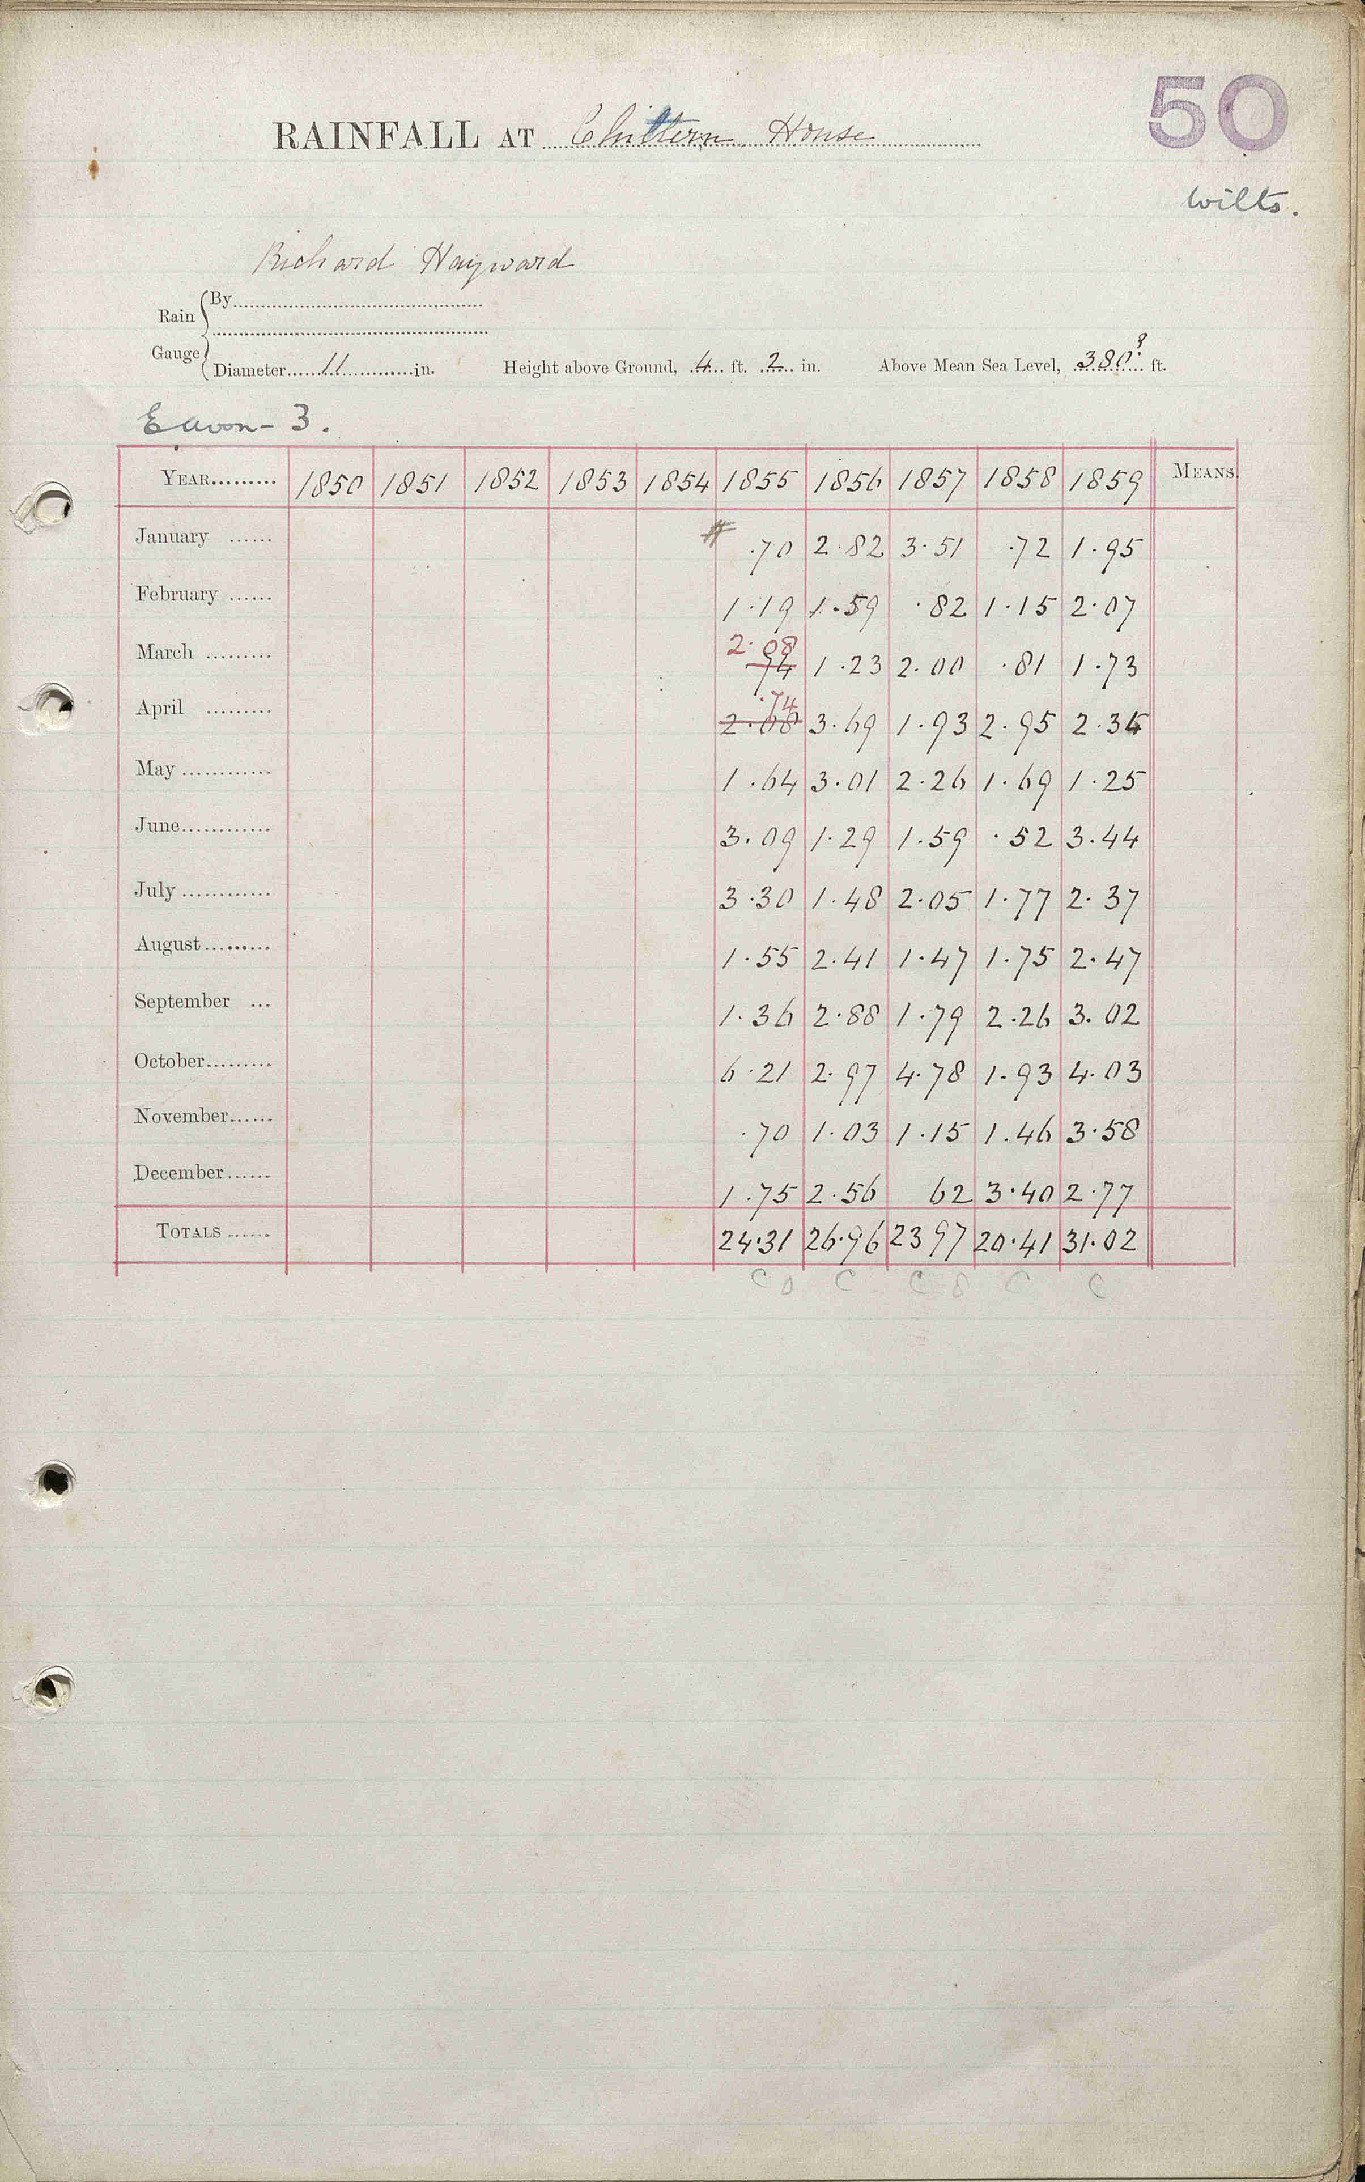 50
RAINFALL AT Chittern House
Wilts.
Richard Hayward
Rain Gauge { By
Diameter 11 in. Height above Ground, 4 ft. 2 in. Above Mean Sea Level, 380? ft.
E Avon - 3.
YEAR 1850 1851 1852 1853 1854 1855 1856 1857 1858 1859 MEANS.
January # .70 2.82 3.51 .72 1.95
February 1.19 1.59 .82 1.15 2.07
2.08
March 74 1.23 2.00 .81 1.73
.74
April 2.08 3.69 1.93 2.95 2.34
May 1.64 3.01 2.26 1.69 1.25
June 3.09 1.29 1.59 .52 3.44
July 3.30 1.48 2.05 1.77 2.37
August 1.55 2.41 1.47 1.75 2.47
September 1.36 2.88 1.79 2.26 3.02
October 6.21 2.97 4.78 1.93 4.03
November .70 1.03 1.15 1.46 3.58
December 1.75 2.56 62 3.40 2.77
TOTALS 24.31 26.96 23 97 20.41 31.02
C C C C